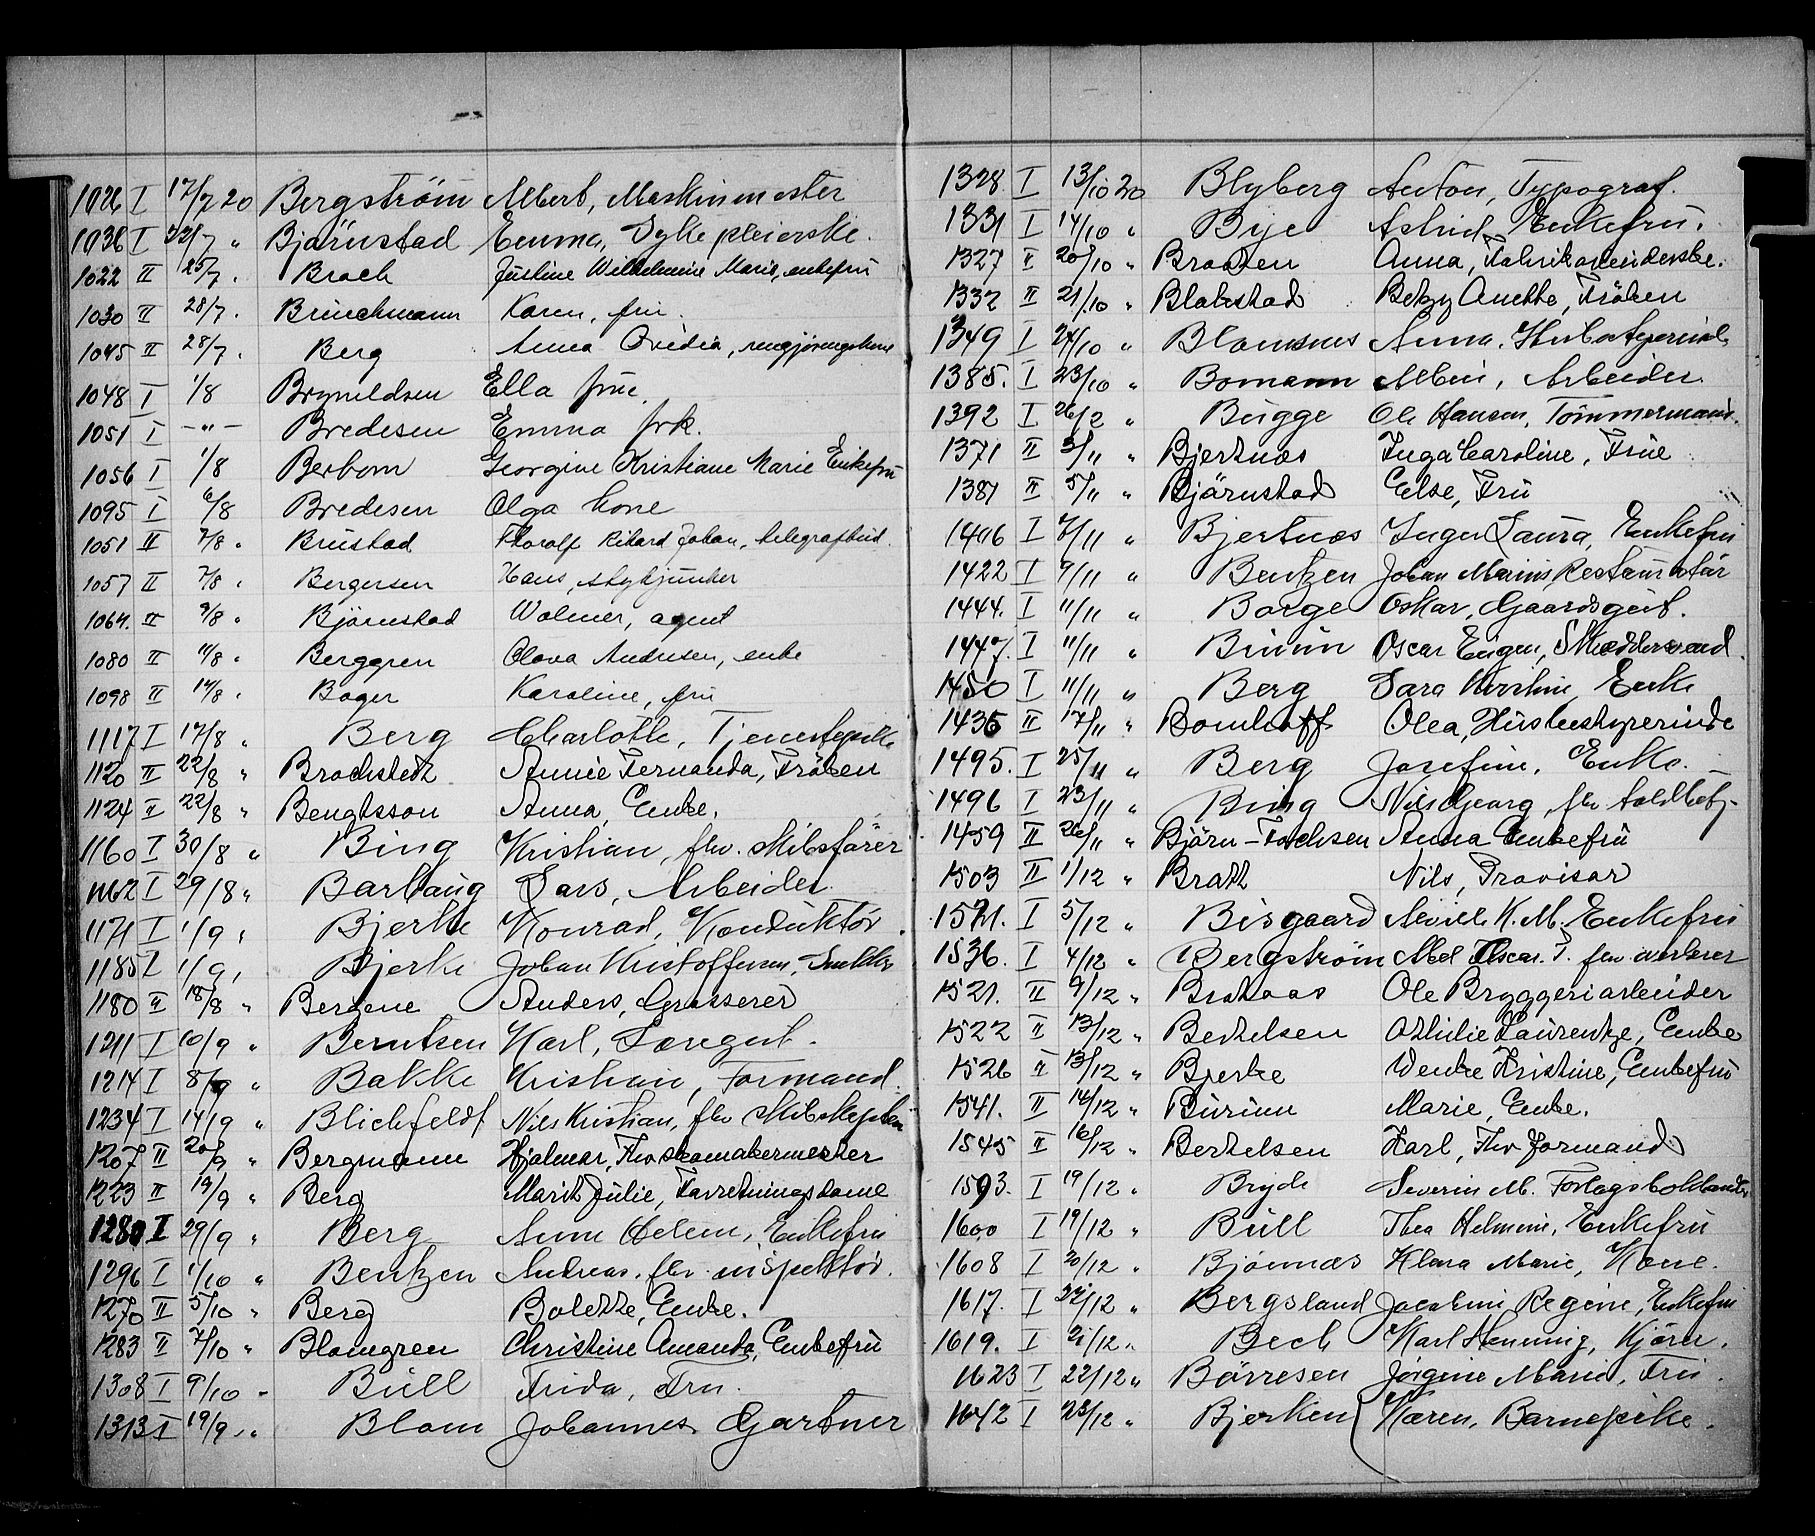 1026 I 17/7 20 Bergstrøm Albert, Maskinmester
1036 I 22/7 " Bjørnstad Emma, Sykepleierske.
1022 II 25/7 . Broch Justine Wilhelmine Marie, enkefru
1030 II 28/7 . Brinchmann Karen, fru.
1045 II 28/7 . Berg Anna Ovidia, rengjøringskone
1048 I 1/8 Brynildsen Ella frue.
1051 I -"- Bredesen Emma frk.
1056 I 1/8 Berbom Georgine Kristiane Marie Enkefru
1095 I 6/8 Bredesen Olga kone
1051 II 7/8 . Brustad Thorolf Rikard Johan, telegrafbud.
1057 II 7/8 . Bergersen Hans, stykjunker
1064. II 9/8 . Bjørnstad Wolmer, agent
1080 II 11/8 . Berggren Olava Andresen, enke
1098 II 14/8 . Boger Karoline, fru
1117 I 17/8 " Berg Charlotte, Tjenestepike
1120 II 22/8 " Brochstedt Annie Fernanda, Frøken
1124 II 22/8 " Bengtsson Anna, Enke.
1160 I 30/8 " Bing Kristian, fhv. Skibsfører
1162 I 29/8 " Barhaug Lars, Arbeider.
1171 I 1/9 . Bjerke Konrad, Konduktør.
1185 I 1/9 . Bjerke Johan Kristoffersen, Snekker
1180 II 18/8 " Bergene Anders, Grosserer
1211 I 10/9 " Berntsen Karl, Læregut.
1214 I 8/9 " Bakke Kristian, Formand.
1234 I 14/9 " Blichfeldt Nils Kristian, fhv Skibskaptein
1207 II 20/9 " Bergmann Hjalmar, Fhv skomakermester
1223 II 19/9 " Berg Marit Julie, Forretningsdame
1280 I 29/9 " Berg Anne Helene, Enkefru
1296 I 1/10 " Bentzen Andreas, fhv. inspektør.
1270 II 5/10 " Berg Bolette, Enke.
1283 II 7/10 " Blomgren Christine Amanda, Enkefru
1308 I 9/10 - Bull Frida, Fru.
1313 I 19/9 . " Blom Johannes Gartner
1328 I 13/10 20 Blyberg Anton, Typograf.
1331 I 14/10 " Bye Astrid Enkefru.
1327 II 20/10 " Braaten Anna, Fabrikarbeiderske.
1332 II 21/10 " Blakstad Betzy Anette, Frøken
1349 I 24/10 " Blomsnes Anna, Husbestyrerinde
1385. I 23/10 " Bomann Albin, Arbeider
1392 I 26/2 " Bugge Ole Hansen, Tømmermand.
1371 II 3/11 " Bjertnæs Inga Caroline, Frue
1387 II 5/11 " Bjärnstad Else, Fru
1406 I 7/11 " Bjertnæs Inger Laura, Enkefru
1422 I 9/11 " Bentzen Johan Marius Restauratør
1444. I 11/11 " Borge Oskar, Gaardsgut.
1447. I 11/11 " Bruun Oscar Eugen, Skræddersvend.
1450 I 11/11 " Berg Sara Kirstine Enke
1435 II 17/11 " Bomhoff Olea, Husbestyrerinde
1495. I 25/11 " Berg Josefine, Enke.
1496 I 23/11 " Bing Nils Georg, fhv toldbetj.
1459 II 26/11 " Björn-Fochsen Anna Enkefru
1503 II 1/12 " Bratt Nils, Provisor
1521. I 5/12 " Bisgaard Neville K. M. Enkefru
1536. I 4/12 " Bergstrøm Abel Oscar. T. fhv verkerer
1521. II 9/12 " Brataas Ole Bryggeriarbeider
1522 II 13/12 " Bertelsen Othilie Laurentze, Enke
1526 II 13/12 " Bjerke Wenke Kristine, Enkefru
1541. II 14/12 " Buruun Marie, Enke.
1545 II 16/12 " Bertelsen Karl, Fhv Formand
1593. I 19/12 " Bryde Severin M. Forlagsbokhandler
1600 I 19/12 " Bull Thea Helmine, Enkefru
1608 I 20/12 " Bjønnæs Klara Marie, Kone.
1617. I 22/12 " Bergsland Jacobine Regine, Enkefru
1619. I 21/12 " Bech Karl Henning, Kjørn.
1623 I 22/12 " Børresen Jørgine Marie, Fru.
1642 I 23/12 " Bjerken Karen, Barnepike.